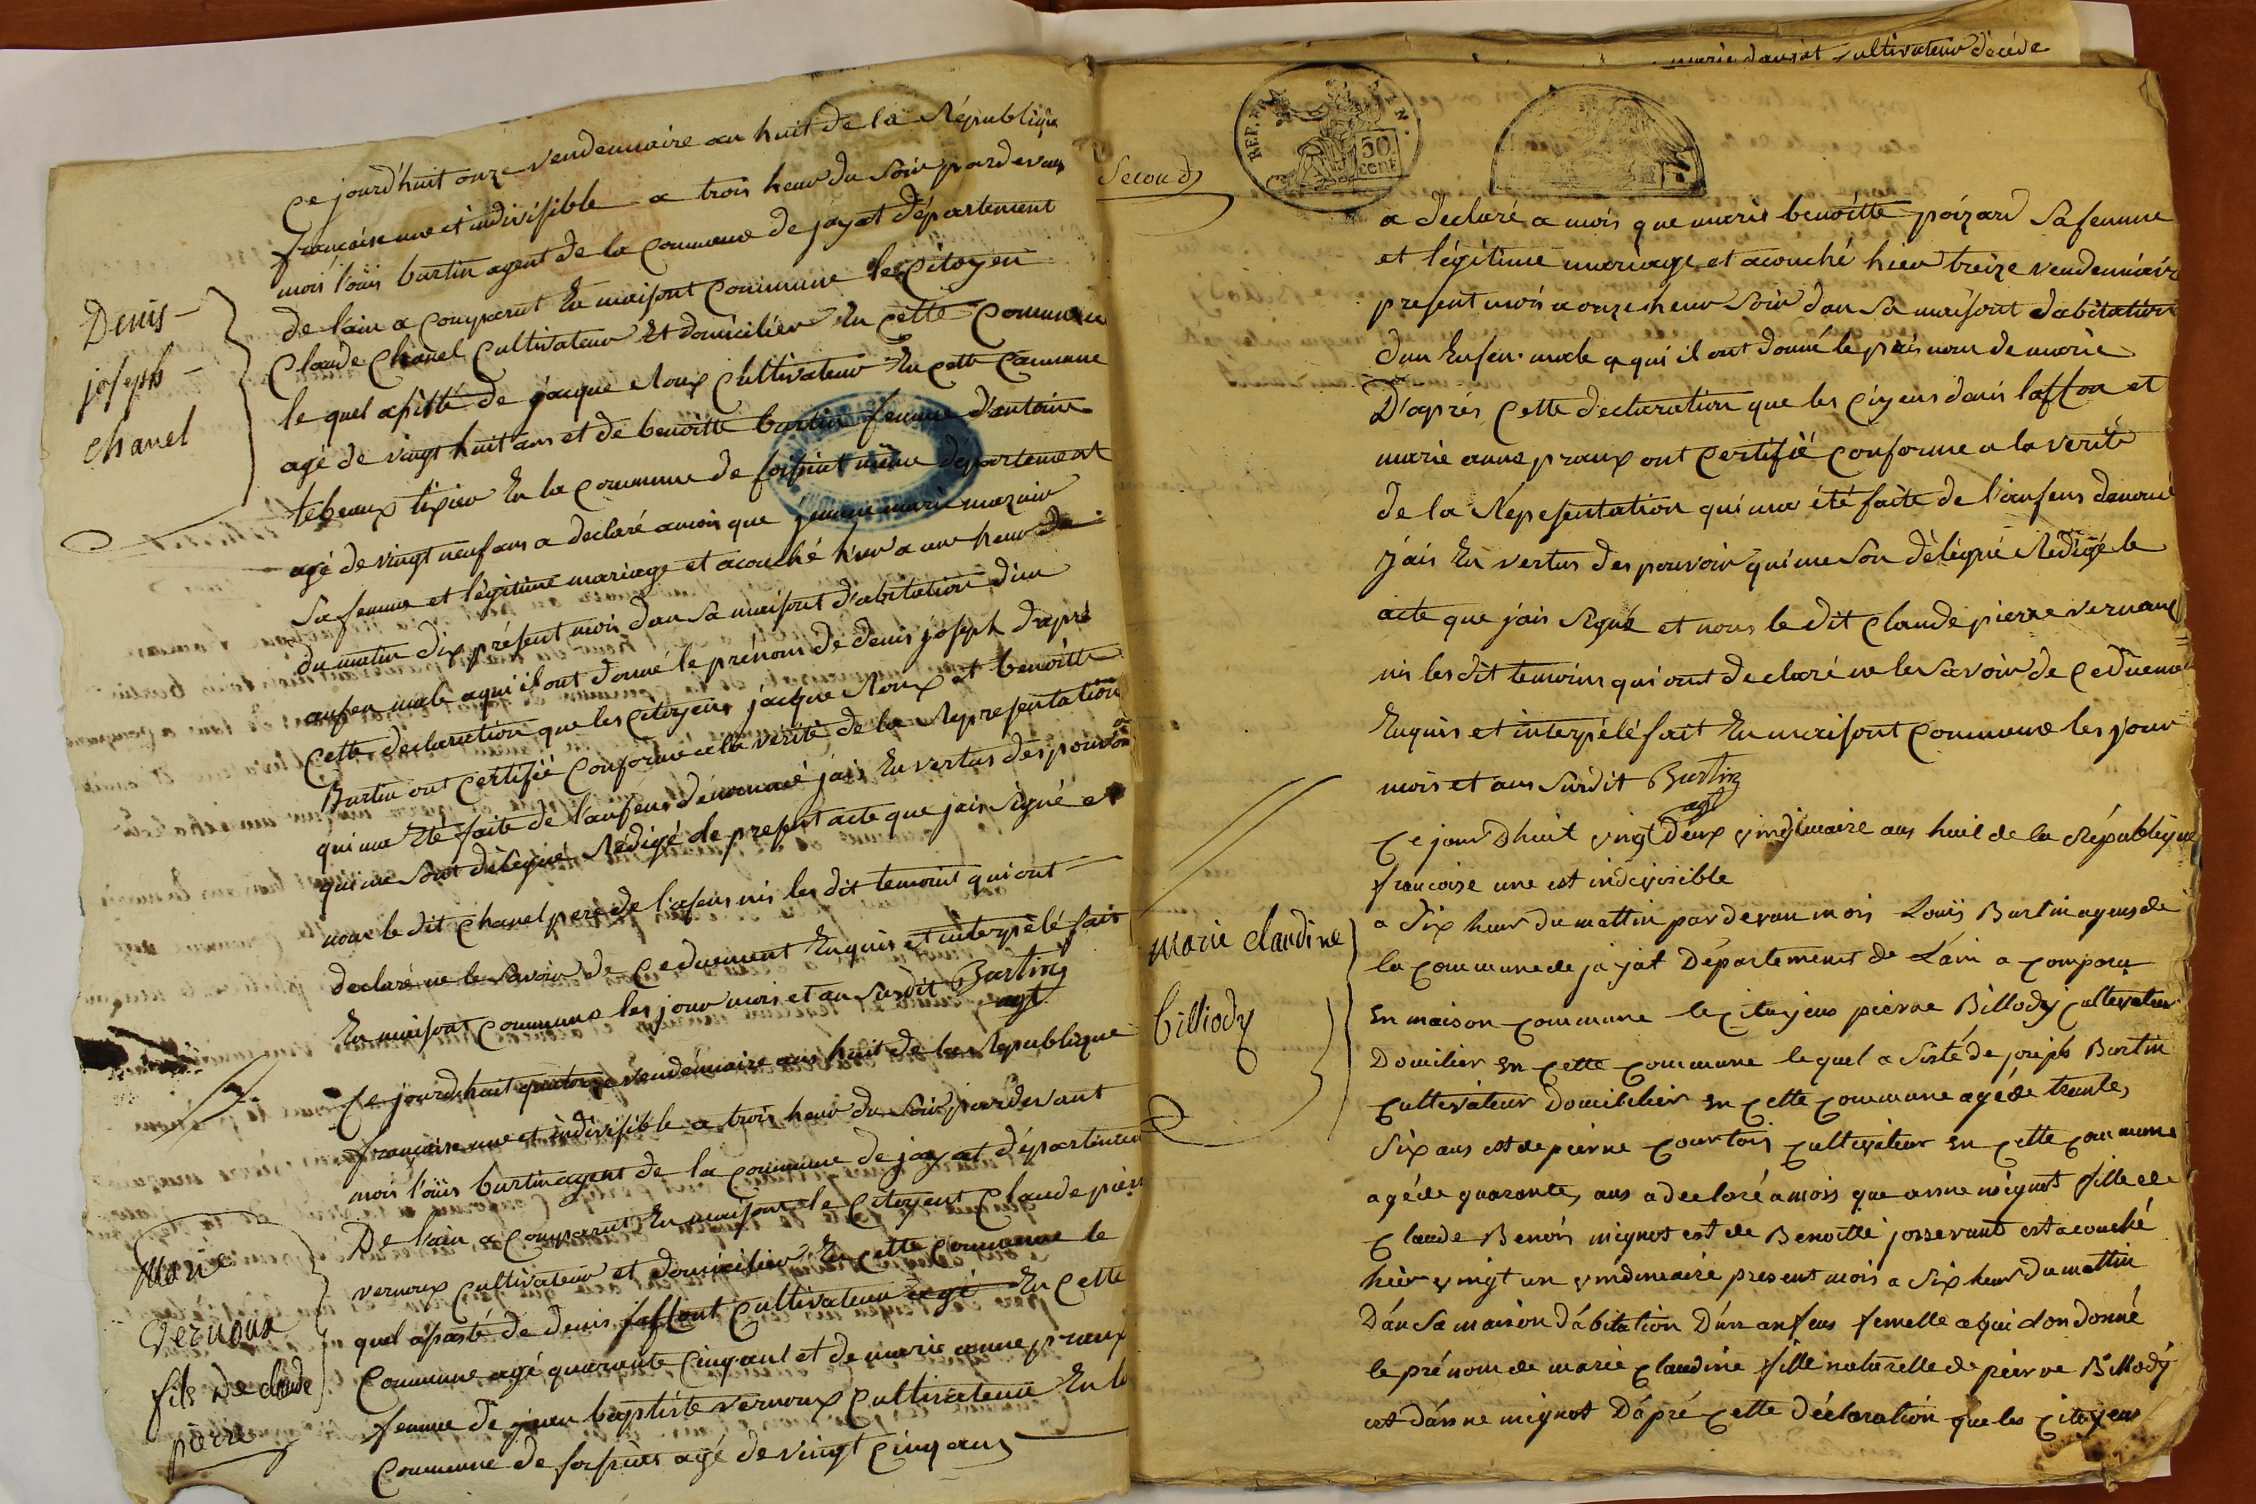 Ce jourd'huit onze vendemiaire an huit de la République
française une et indivisible a trois heur du soir pardevan
mois louis burtin agent de la commune de jayat département
de lain a comparut En maisont commune le Citoyen
Claude Chanel Cultivateur Et domicilier En cette Commune
le quel asisté de jacque Roux Cultivateur En cette Commune
agé de vingt huit ans et de benoitte burtin femme d'antoine
tebeaux tixier En la commune de foissiat même département
agé de vingt neuf ans a declaré a mois que jeanne marie mazuir
Sa femme et légitime mariage et acouché hier a une heur du
du matin dix présent mois dan sa maisont d'abitation d'un
anfen male a qui il ont donné le prénom de denis joseph d'apré
Cette declaration que les Citoyens jacque Roux et benoitte
Burtin ont certifié conforme a la vérité de la Representation
qui ma Eté faite de l'anfens dénommé jais En vertus des pouvoir
qui me sont délégué Rédigé le present acte que jais signé et
nom le dit Chanel pere de l'afens nis les dit temoint qui ont
declaré ne le savoir de ce duement Enquis et interpèlé fait
En maisont commune les jour mois et an susdit Burtin
agt
Denis
joseph
chanel
Ce jourdhuit quatorze vendémiaire ans huit de la Republique
française une et indivisible a trois heur du soir pardevant
mois louis burtin agent de la commune de jayat département
De l'ain a Comparut En maisont le Citoyent Claude pierre
vernoux cultivateur et domicilier En cette Commune le
quel asisté de denis faffont Cultivateur agé En cette
Commune agé quarante cinq ant et de marie anne praux
femme de jean baptiste vernoux Cultivateur En la
Commune de foissiat agé de vingt cinq ans
Marie
Vernoux
fils de claude
pierre
marie dauset cultivateur décédé
Second
REP. FRA
50
CENT
a declaré a mois que marie benoitte poizard Sa femme
et légitime mariage et acouché hier treize vendemiair
present mois a onze heur Soir dan Sa maisont dabitation
dun Enfen male a qui il ont donné le prénom de marie
D'aprés Cette declaration que les Ciyens denis laffon et
marie anne praux ont Certifié conforme a la verité
de la Repesentation qui ma été faite de l'anfens denomé
jais En vertus des pouvoir qui me Son délégué Rédigé le
acte que jais Signé et nous le dit claude pierre vernoux
nis les dit temoins qui ont declaré ne le savoir de ce duement
Enquis et interpélé fait En maisont Commune les jour
mois et ans susdit Burtin
agt
Ce jour Dhuit vingt deux vindimaire ans huit de la République
françoise une est indivisible
a Six heur du mattin par devan mois Louis Burtin agens de
la commune de jajat Département de Lain a comparu
En maison commune le citoyens pierre Billody cultivateur
Domilier En cette commune lequel a Sisté de joseph Burtin
cultivateur Domicilier en cette commune agé de trante
Six ans est de pierre courtois cultivateur en cette commune
agé de quarante ans a declaré a mois que anne mignot fille de
Claude Benois mignot est de Benoitte josserant est acouché
heir vingt un vindmeaire present mois a Six heur du mattin
Dan Sa maison D'abitation D'un anfans femelle a qui il on donné
le prénom de marie Claudine fille naturelle de peirre Billody
est d'anne mignot D'apré cette déclaration que les citoyens
Marie claudine
billiody